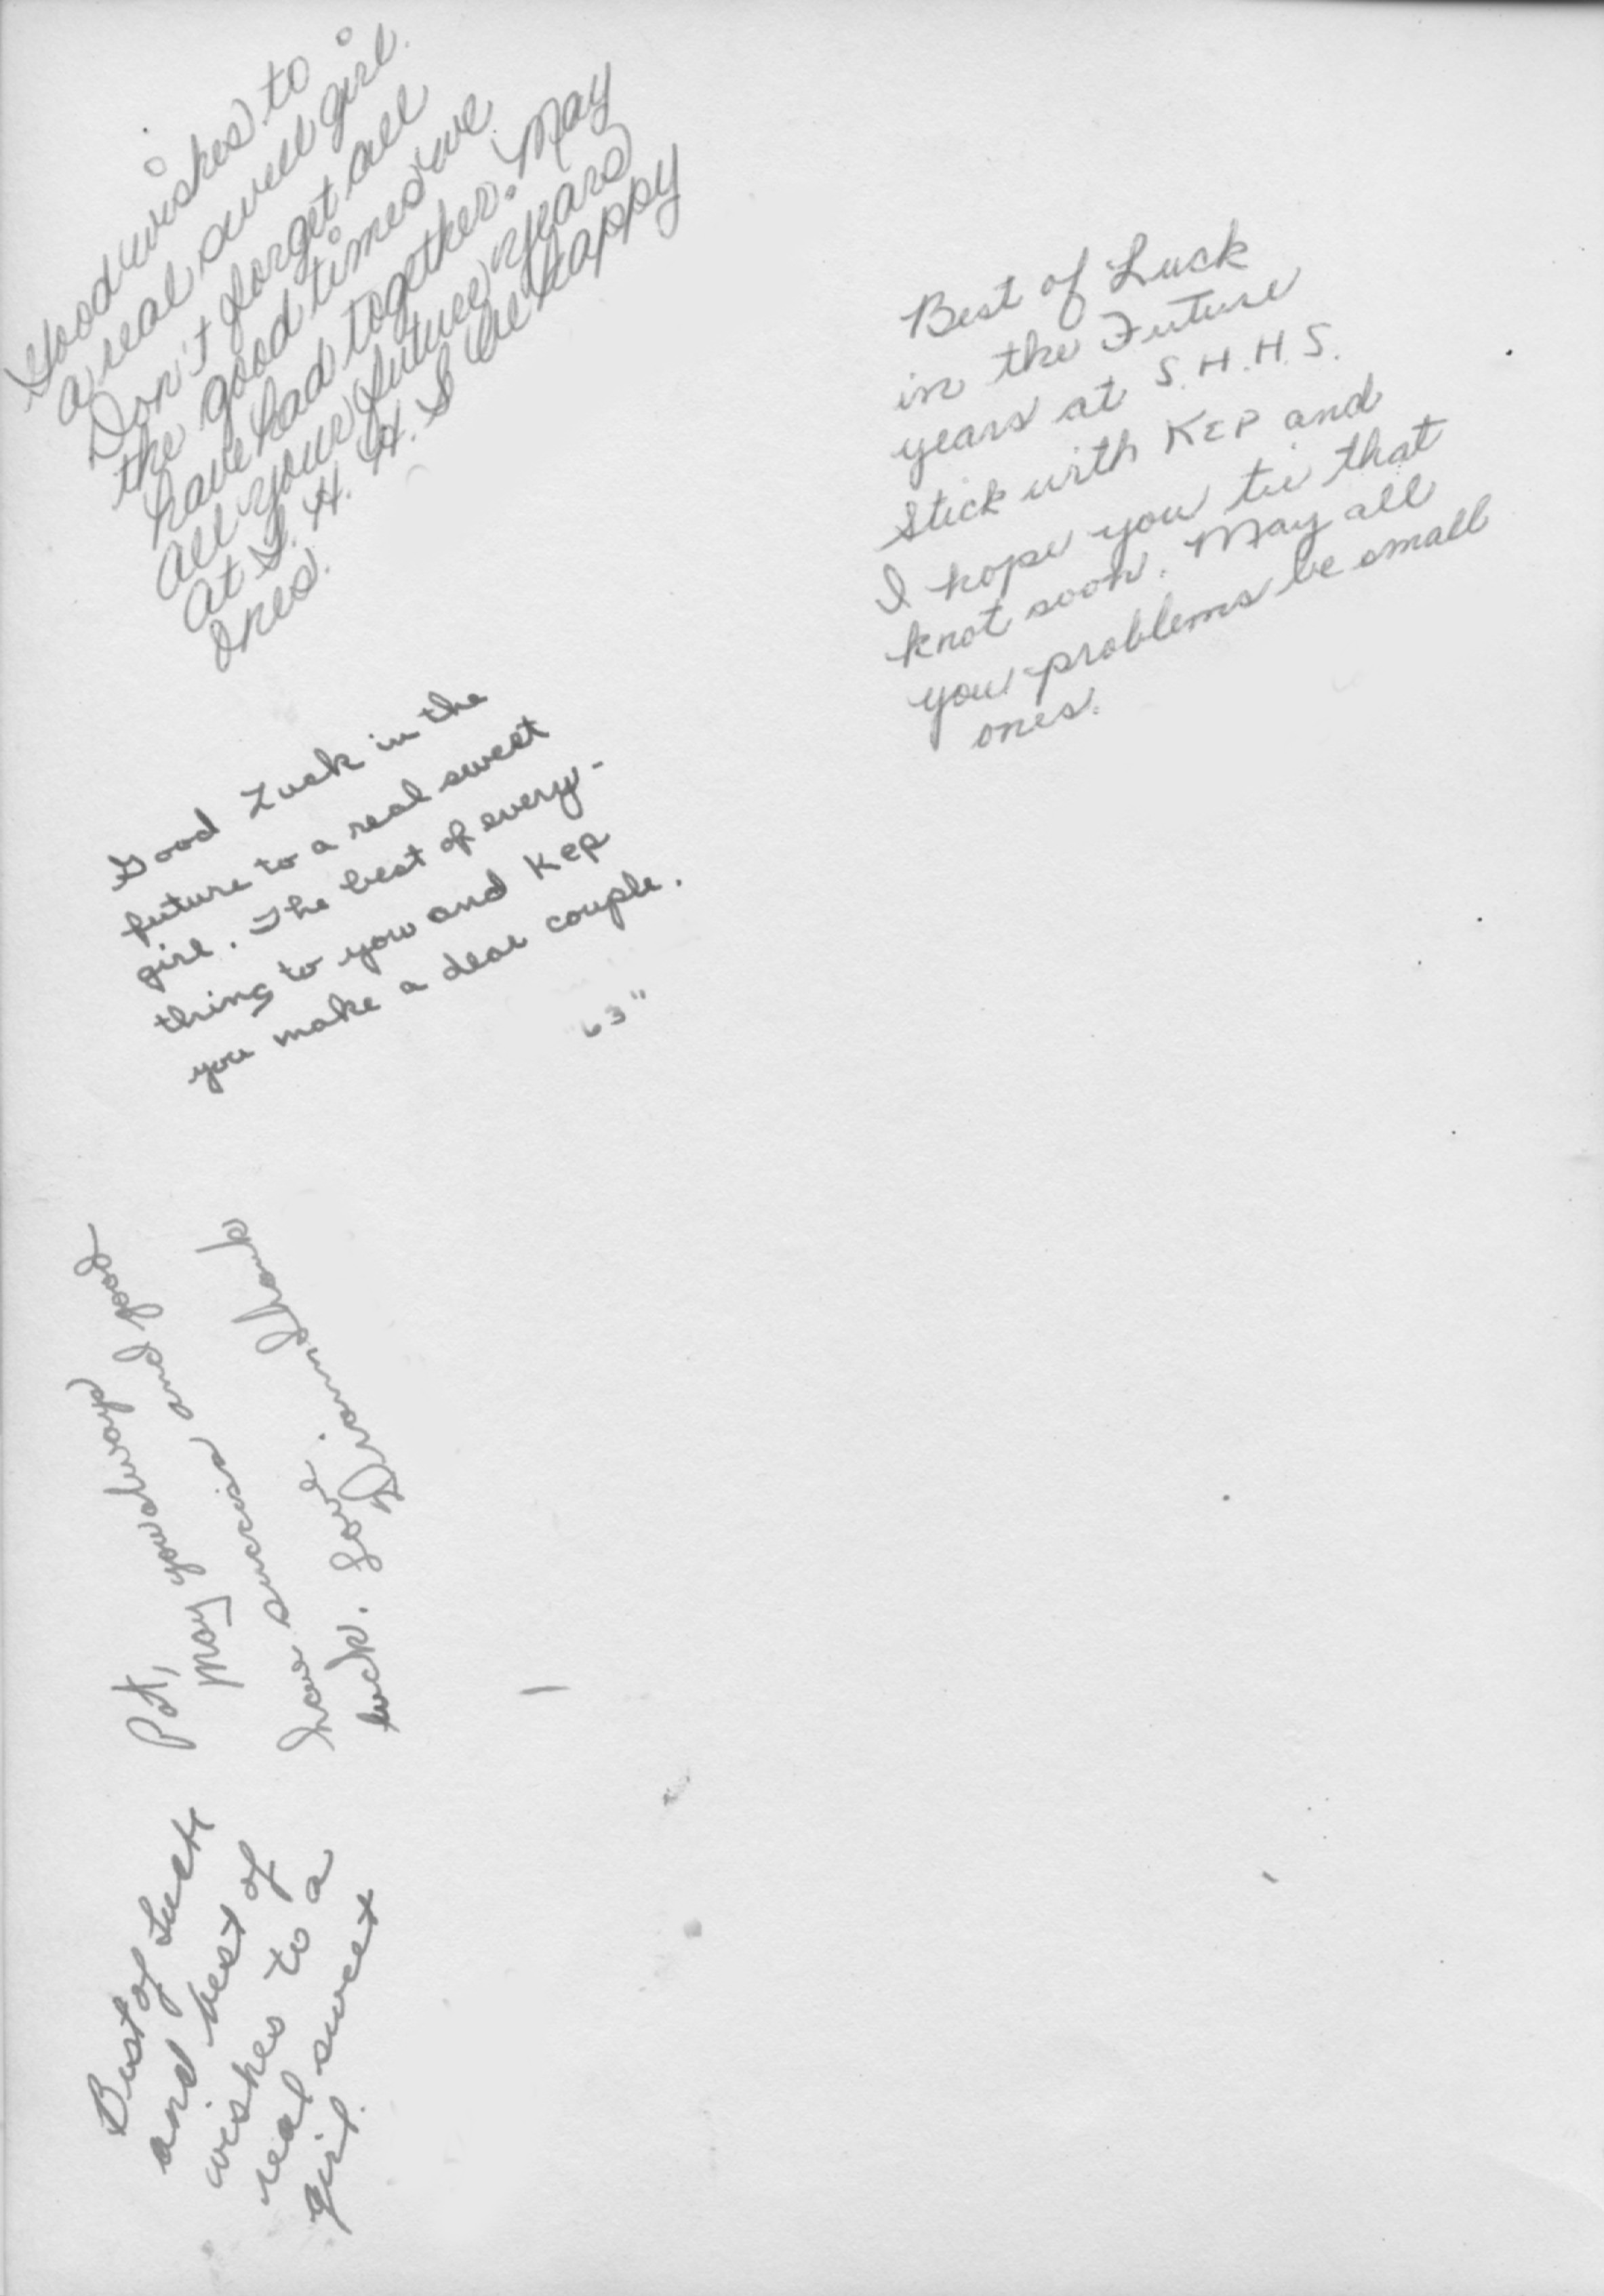 Good wishes to
a real swell girl.
Don't forget all
the good times we
have had together. May
all your future years
at S. H. H. S be happy
ones.
Good Luck in the
future to a real sweet
girl. The best of every-
thing to you and Kep
you make a dear couple.
"63"
Pat,
May you always
have success and good
luck. Love,
Best of Luck
and best of
wishes to a
real sweet
girl.
Best of Luck
in the Future
years at S.H.H.S.
Stick with KEP and
I hope you tie that
knot soon. May all
you problems be small
ones.